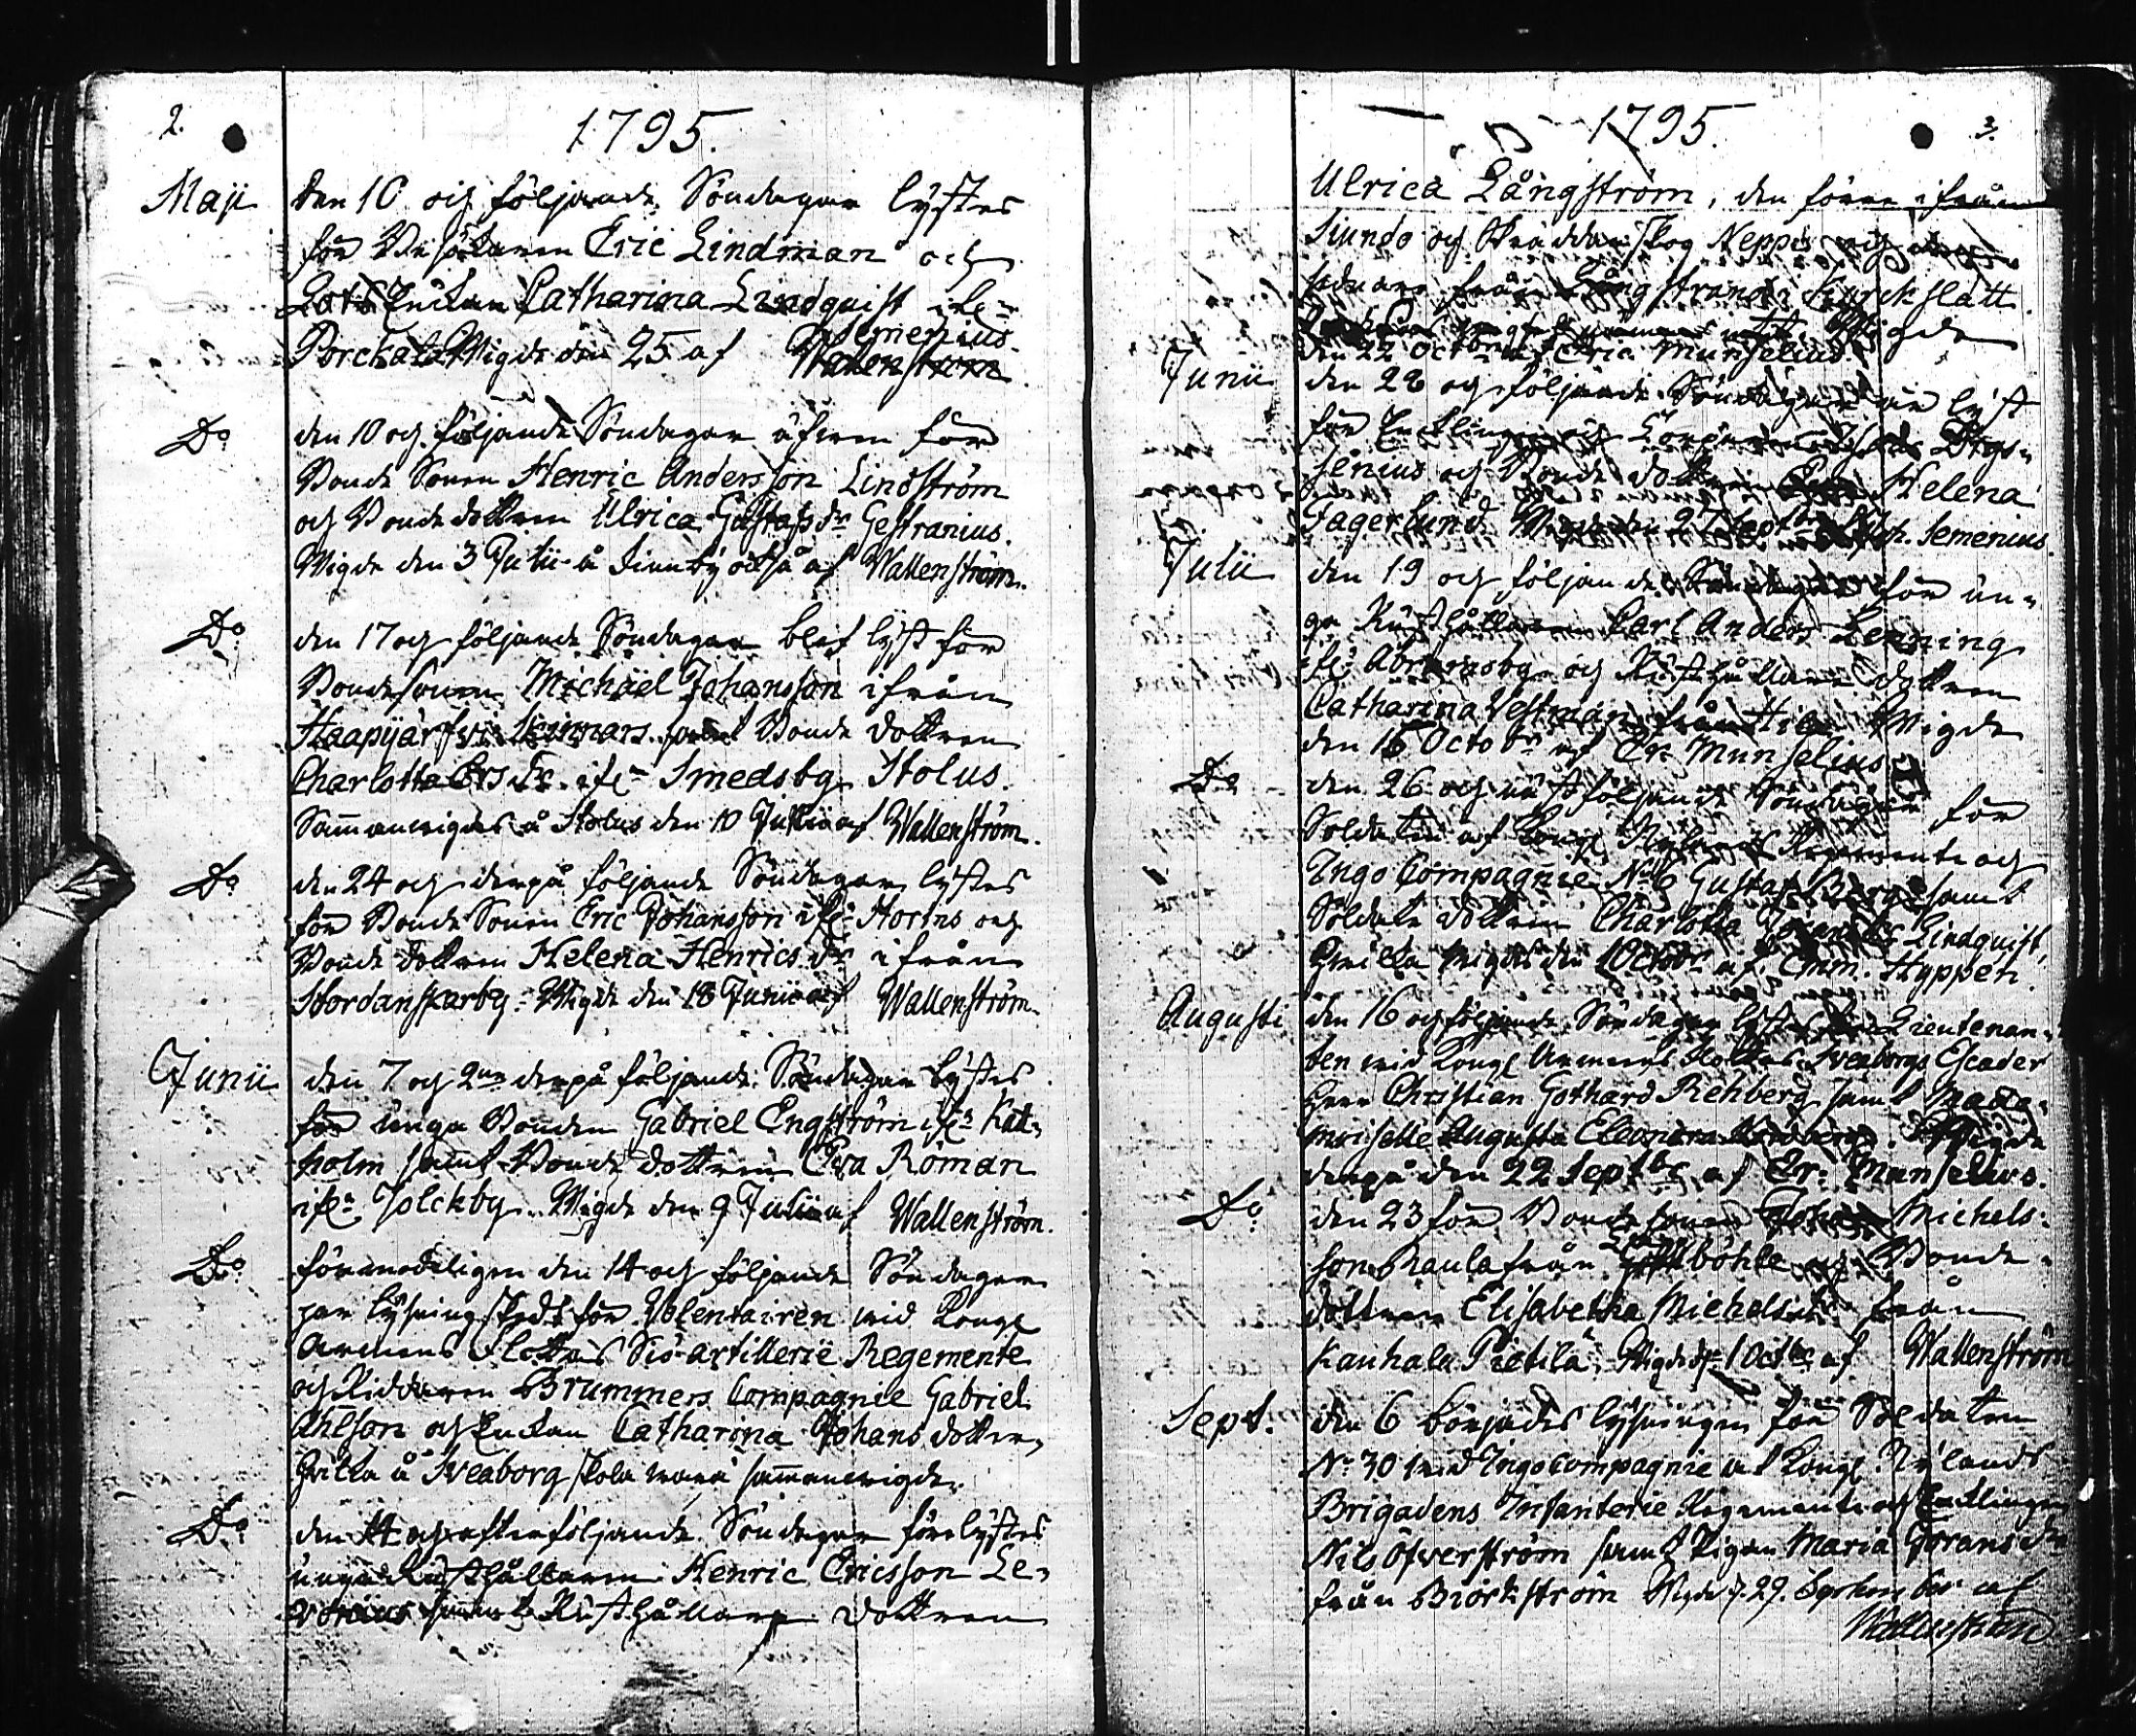 2.
1795.
Maji
den 10 och följande Söndagar lystes
för Eric Lindman och
Lots Enkan Catharina Lindquist ifr=
Semenius
Porckala Wigde den 25 af Wallenström
Do
den 10 och följande Söndagar äfven för
Bonde Sonen Henric Andersson Lindström
och Bonde dottren Ulrica Gustafs dr Gestranius.
Wigde den 3 Julii å också af Wallenström.
Do
den 17 och följande Söndagar blef lyst för
Bondesonen Michäel Johansson ifrån
Haapijärfvi samt Bonde dottren
Charlotta Ers dr ifr= Smedsby Stolus.
Sammanvigdes å Stolus den 10 Julii af Wallenström.
Do
den 24 och derpå följande Söndagar lystes
för Bonde Sonen Eric Johansson ifr= Horns och
Bonde dottren Helena Henrics dr ifrån
Wigde den 18 Junii af Wallenström
Junii
den 7 och 2ne derpå följande Söndagar lystes
för unga Bonden Gabriel Engström ifr= Kat=
holm samt Bonde dottren Eva Roman
ifr= Jolckby. Wigde den 9 Julii af Wallenström.
Do
förmodeligen den 14 och följande Söndagar
har lysning skedt för Volentairen vid Kongl
Armens Flottas Siö-artillerie Regemente
och Riddaren Brummers Compagnie Gabriel
Ahlson och Enkan Catharina Johans dotter,
hvilka å Sveaborg skola vara sammanvigde.
Do
den 14 och efterföljande Söndagar förelystes
unga Rusthållaren Henric Ericsson Le=
samt Rusthållare dottren
3.
1795.
Ulrica Långström, den förre ifrån
Siundo och Neppis och
sednare från Långstrand i Kyrckslätt
Wigde
den 22 Octobr af Eric Munselius
Junii
den 28 och följande Söndagar är lyst
för Enklingen och
senius och Bonde dottren Helena
Fagerlund Wigde den 27 Septbr af Joh. Semenius.
Julii
den 19 och följande Söndagar för un=
ga Rusthållaren Carl Anders Lenning
ifr= Abramsby och Rusthållare dottren
Catharina Vestman från Wigde
den 16 Octobr af Er. Munselius
Do
den 26 och näst följande Söndagar för
Soldaten af Kongl Nylands Regemente och
Ingo Compagnie No 6 Gustaf Berg samt
Soldate dottren Charlotta Lindquist,
hvilka vigdes den 1 Octobr af Emm. Hyppén.
Augusti
den 16 och följande Söndagar lystes för Lieutenan=
ten vid Kongl Armens Flottas Sveaborgs Escader
Herr Christian Gothard Rehberg samt Made=
moiselle Augusta Eleonora Wigde
derpå den 22 Septbr af Er. Munselius.
Do
den 23 för Bondesonen Johan Michels=
son Raula från böhle och Bonde=
dottren Elisabetha Michelsdr från
Kauhala Pietilä. Wigde d= 1 Octbr af Wallenström
Sept.
den 6 börjades lysningen för Soldaten
No 30 vid Ingo Compagnie af Kongl. Nylands
Brigadens Infanterie Regemente och Enklingen
Nils Öfverström samt Pigan Maria Görans dr
från Björkström Wigde d. 29. af
Wallenström